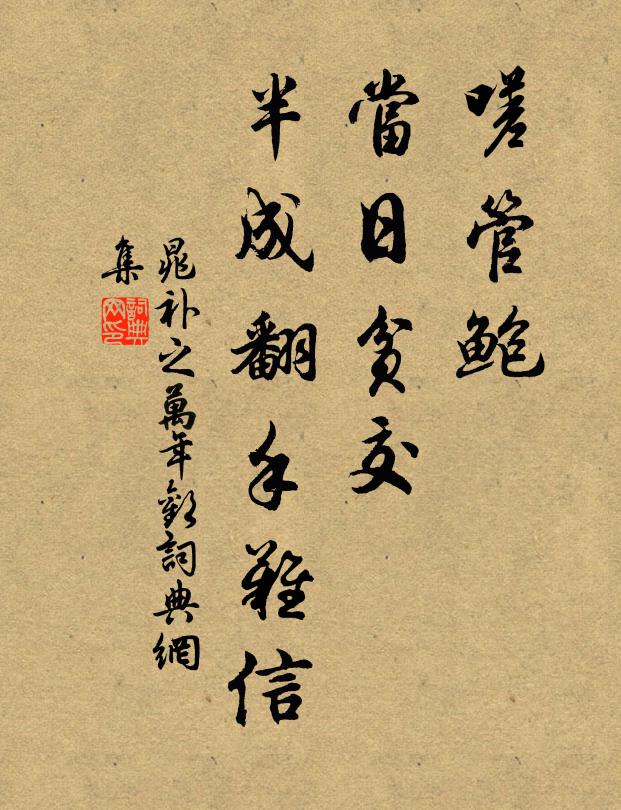 嗟管鮑
當日貧交
半成翻手難信
晁补之萬年歡詞典網
集
詞典网印